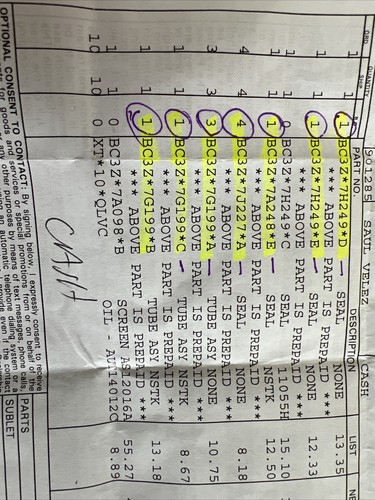 901285 SAUL VELEZ CASH
ORD. QUANTITY SHIP. PART NO. DESCRIPTION LIST NE
1 1 BC3Z*7H249*D SEAL NONE 13.35
*** ABOVE PART IS PREPAID ***
1 1 1 BC3Z*7H249*E SEAL NONE 12.33
*** ABOVE PART IS PREPAID ***
1 1 BC3Z*7H249*C SEAL 11055H 15.10
1 1 1 BC3Z*7A248*E SEAL NSTK 12.50
*** ABOVE PART IS PREPAID ***
4 4 4 BC3Z*7J227*A SEAL NONE 8.18
*** ABOVE PART IS PREPAID ***
3 3 3 BC3Z*7G199*A TUBE ASY NONE 10.75
*** ABOVE PART IS PREPAID ***
1 1 1 BC3Z*7G199*C TUBE ASY NSTK 8.67
*** ABOVE PART IS PREPAID ***
1 1 1 BC3Z*7G199*B TUBE ASY NSTK 13.18
*** ABOVE PART IS PREPAID ***
1 1 0 BC3Z*7A098*B SCREEN 2016A 55.27
10 10 0 XT*10*QLVC OIL - AUTM4012C 8.89
CASH
OPTIONAL CONSENT TO CONTACT: By signing below, I expressly consent to receive
PARTS
SUBLET